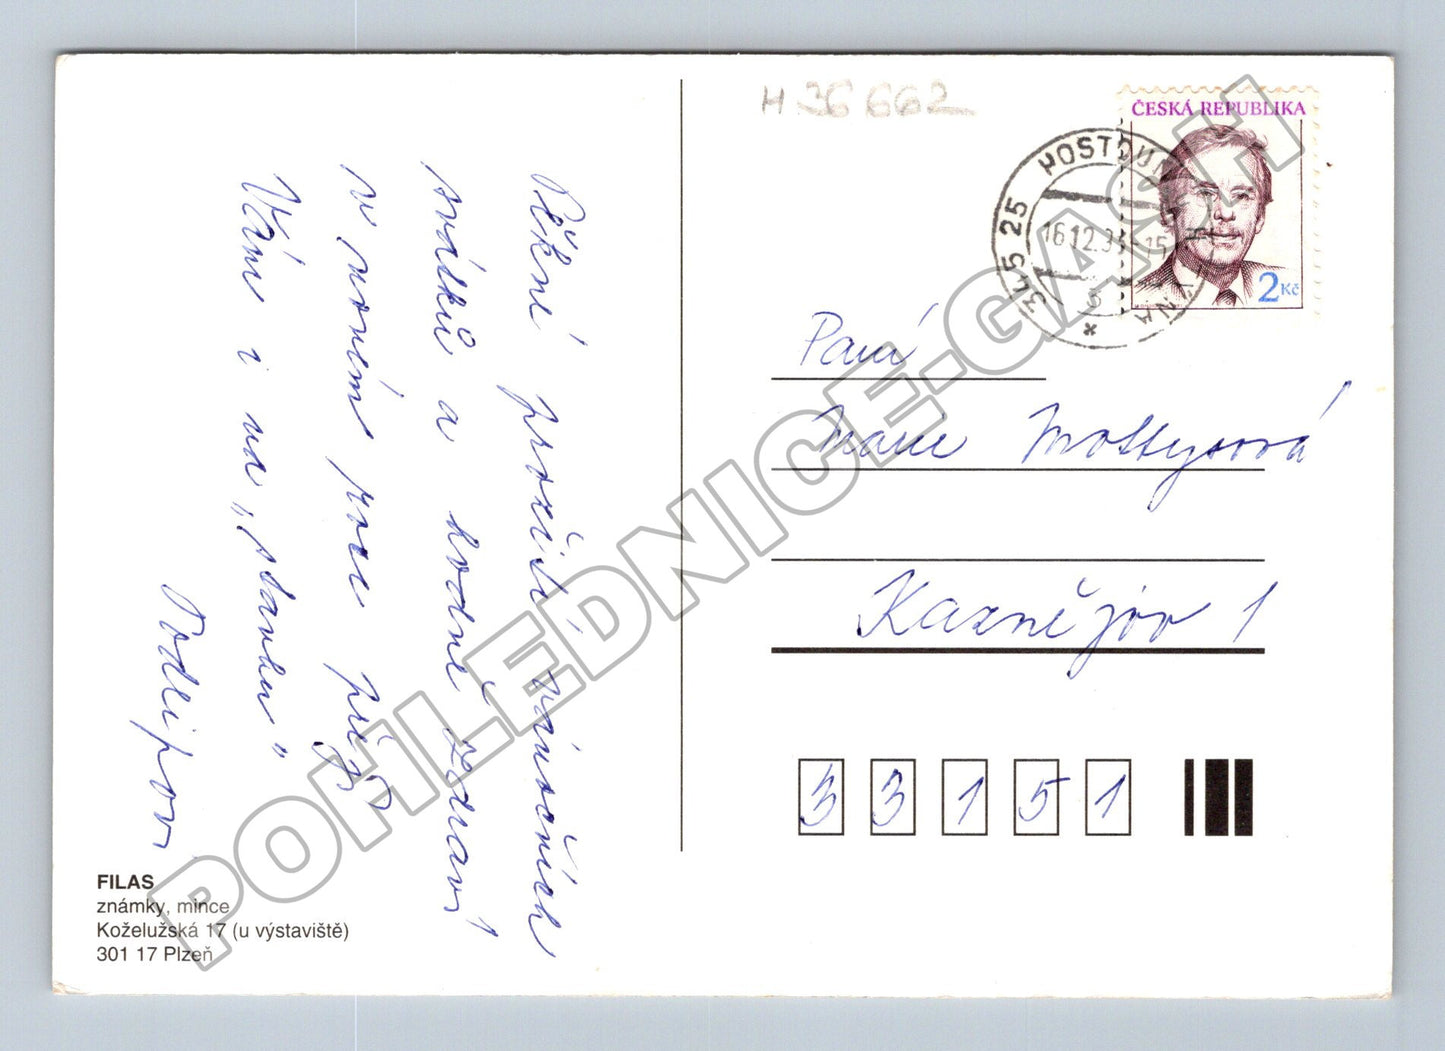 Pěkné prožití vánočních
svátků a hodně zdraví
v novém roce přeje
Vám i na „stavku"
Podlipov
FILAS
známky, mince
Koželužská 17 (u výstaviště)
301 17 Plzeň
H 36 662
ČESKÁ REPUBLIKA
2 Kč
345 25 HOSTOUŇ
16.12.9 -15
3
Paní
Marie
Kaznějov 1
3 3 1 5 1
POHLEDNICE-GASH